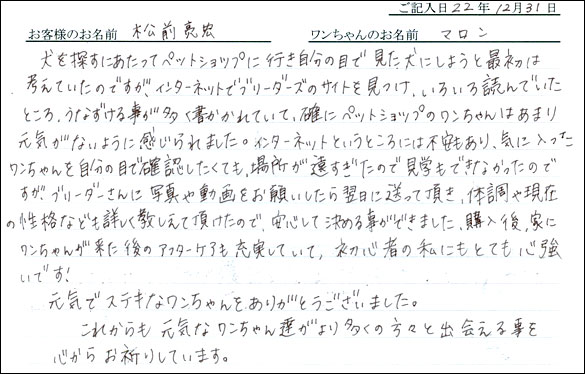 ご記入日 22年 12月31日
お客様のお名前 松前亮宏 ワンちゃんのお名前 マロン
犬を探すにあたってペットショップに行き自分の目で見た犬にしようと最初は
考えていたのですが、インターネットでブリーダーズのサイトを見つけ、いろいろ読んでいた
ところ、うなずける事が多く書かれていて、確にペットショップのワンちゃんはあまり
元気がないように感じられました。インターネットというところには不安もあり、気に入った
ワンちゃんを自分の目で確認したくても、場所が遠すぎたので見学もできなかったので
すが、ブリーダーさんに写真や動画をお願いしたら翌日に送って頂き、体調や現在
の性格なども詳しく教しえて頂けたので、安心して決める事ができました。購入後、家に
ワンちゃんが来た後のアフターケアも充実していて、初心者の私にもとても心強
いです!
元気でステキなワンちゃんをありがとうございました。
これからも元気なワンちゃん達がより多くの方々と出会える事を
心からお祈りしています。